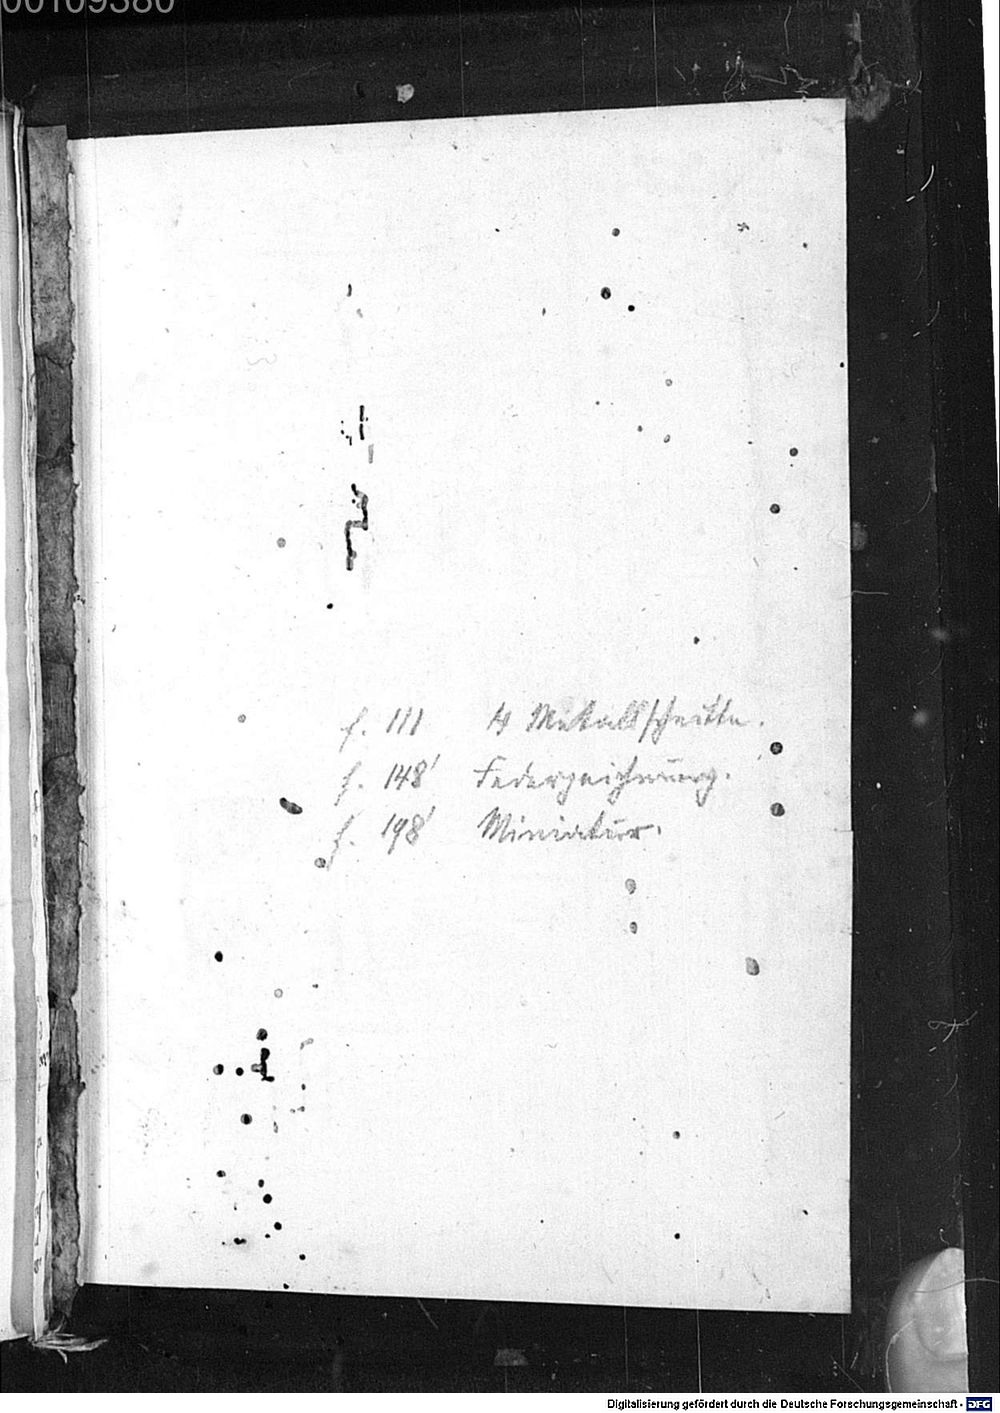 00109380
f. 111 4 Metallschnitte.
f. 148' Federzeichnung.
f. 198' Miniatur.
Digitalisierung gefördert durch die Deutsche Forschungsgemeinschaft - DFG